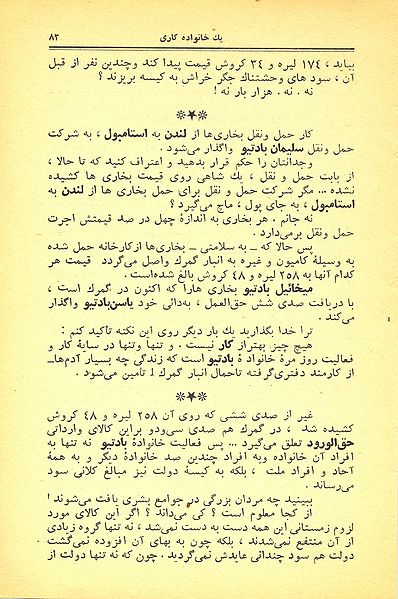 یك خانواده کاری ۸۳
بیابد ، ۱۷٤ لیره و ۳٤ کروش قیمت پیدا کند وچندین نفر از قبل
آن ، سود های وحشتناك جگر خراش به کیسه بریزند ؟
نه . نه . هزار بار نه !
***
کار حمل ونقل بخاری‌ها از لندن به استامبول ، به شرکت
حمل ونقل سلیمان بادتیو واگذار می‌شود .
وجدانتان را حکم قرار بدهید و اعتراف کنید که تا حالا ،
از بابت حمل و نقل ، یك شاهی روی قیمت بخاری ها کشیده
نشده ... مگر شرکت حمل و نقل برای حمل بخاری ها از لندن به
استامبول ، به جای پول ، ماچ می‌گیرد ؟
نه جانم . هر بخاری به اندازهٔ چهل در صد قیمتش اجرت
حمل ونقل برمی‌دارد .
پس حالا که ــ به سلامتی ــ بخاری‌ها ازکارخانه حمل شده
به وسیلهٔ کامیون و غیره به انبار گمرك واصل می‌گردد قیمت هر
کدام آنها به ۲۵۸ لیره و ٤۸ کروش بالغ شده‌است .
میخائیل بادتیو بخاری هارا که اکنون در گمرك است ،
با دریافت صدی شش حق‌العمل ، به‌دائی خود یاسن‌بادتیو واگذار
می‌کند .
ترا خدا بگذارید یك بار دیگر روی این نکته تاکید کنم :
هیچ چیز بهتراز کار نیست . و تنها وتنها در سایهٔ کار و
فعالیت روز مرهٔ خانوادهٔ بادتیو است که زندگی چه بسیار آدم‌ها ــ
از کارمند دفتری‌گرفته تاحمال انبار گمرك ! تامین می‌شود .
***
غیر از صدی ششی که روی آن ۲۵۸ لیره و ٤۸ کروش
کشیده شد ، در گمرك هم صدی سی‌ودو براین کالای وارداتی
حق‌الورود تعلق می‌گیرد ... پس فعالیت خانوادهٔ بادتیو نه تنها به
افراد آن خانواده وبه افراد چندین صد خانوادهٔ دیگر و به همهٔ
آحاد و افراد ملت ، بلکه به کیسهٔ دولت نیز مبالغ کلانی سود
می‌رساند .
ببینید چه مردان بزرگی در جوامع بشری یافت می‌شوند !
از کجا معلوم است ؟ کی می‌داند ؟ اگر این کالای مورد
لزوم زمستانی این همه دست به دست نمی‌شد ، نه تنها گروه زیادی
از آن منتفع نمی‌شدند ، بلکه چون به بهای آن افزوده نمی‌گشت
دولت هم سود چندانی عایدش نمی‌گردید . چون که نه تنها دولت از